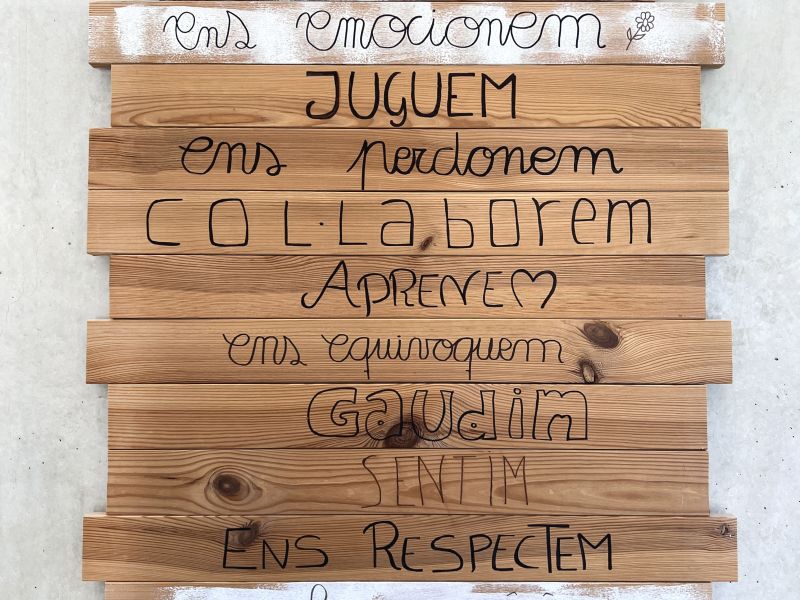 ens emocionem
JUGUEM
ens perdonem
COL·LaBorem
APRENEM
ens equivoquem
Gaudim
SENTIM
ENS RESPECTEM